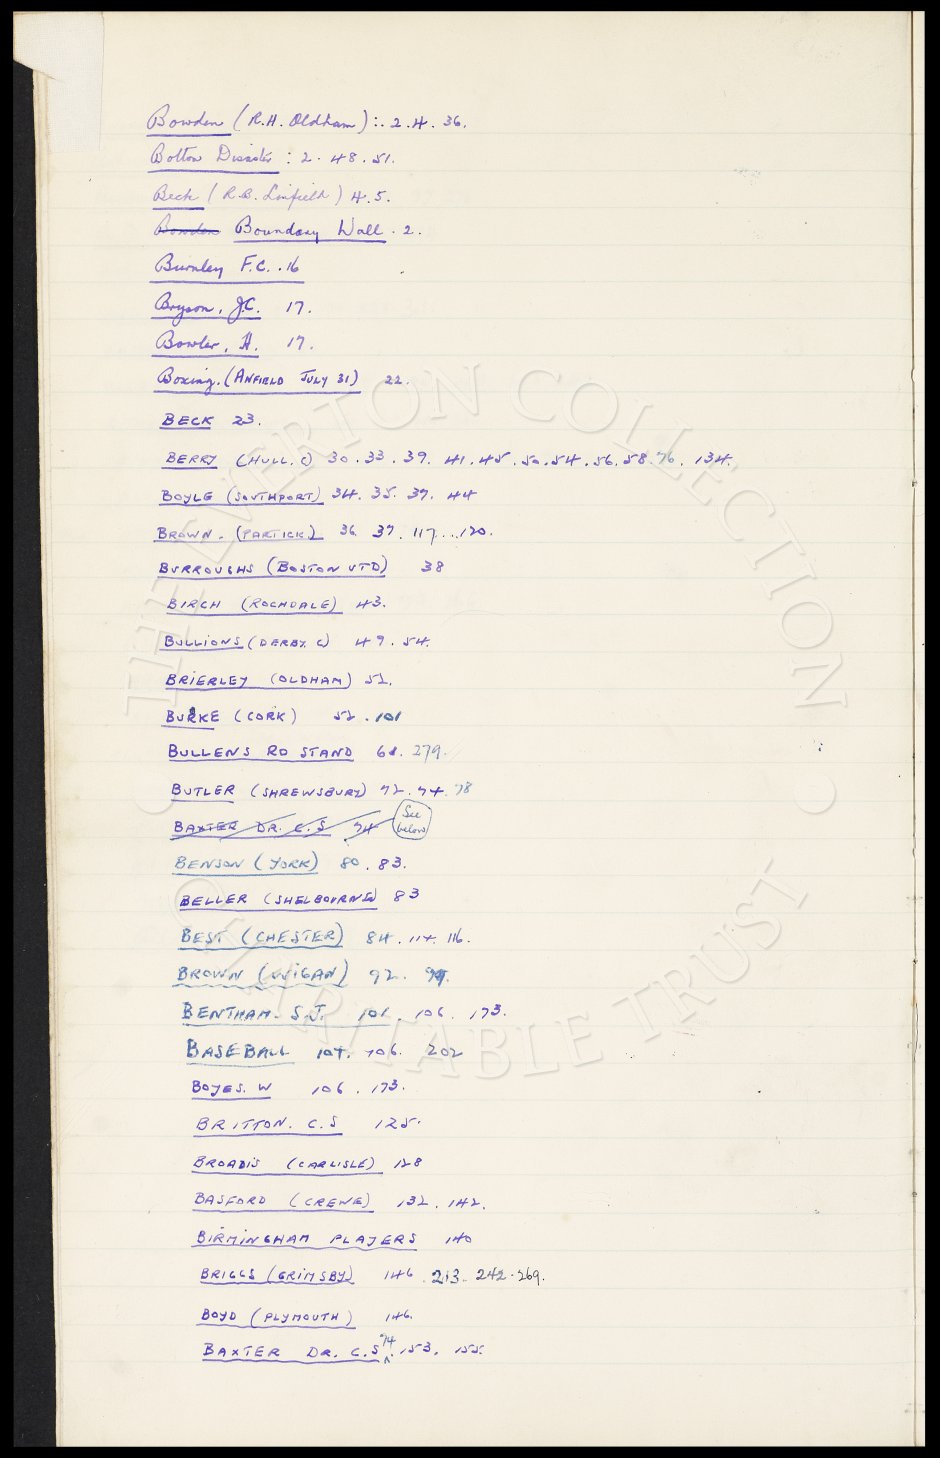 Bowden (R.H. Oldham) :. 2. 4. 36.
Bolton Disaster : 2. 48. 51.
Beck (R.B. Linfield) 4. 5.
Bowden Boundary Wall. 2.
Burnley F.C. . 16
Bryson, J.C. 17.
Bowler, H. 17.
Boxing. (ANFIELD JULY 31) 22.
BECK 23.
BERRY (HULL. C) 30. 33. 39. 41. 45. 50. 54. 56. 58. 76. 134.
BOYLE (SOUTHPORT) 34. 35. 37. 44
BROWN. (PARTICK) 36. 37. 117... 120.
BURROUGHS (BOSTON UTD) 38
BIRCH (ROCHDALE) 43.
BULLIONS (DERBY. C) 49. 54.
BRIERLEY (OLDHAM) 52.
BURKE (CORK) 52. 101
BULLENS RD STAND 61. 279.
BUTLER (SHREWSBURY) 72. 74. 78
BAXTER DR. C.S 74 See below
BENSON (YORK) 80. 83.
BELLER (SHELBOURNE) 83
BEST (CHESTER) 84. 114. 116.
BROWN (WIGAN) 92.
BENTHAM. S.J. 101. 106. 173.
BASEBALL 104. 106. 202
BOYES. W 106. 173.
BRITTON. C.S 125.
BROADIS (CARLISLE) 128
BASFORD (CREWE) 132. 142.
BIRMINGHAM PLAYERS 140
BRIGGS (GRIMSBY) 146. 213. 242. 269.
BOYD (PLYMOUTH) 146.
BAXTER DR. C.S 74. 153. 155.
THE EVERTON COLLECTION
CHARITABLE TRUST